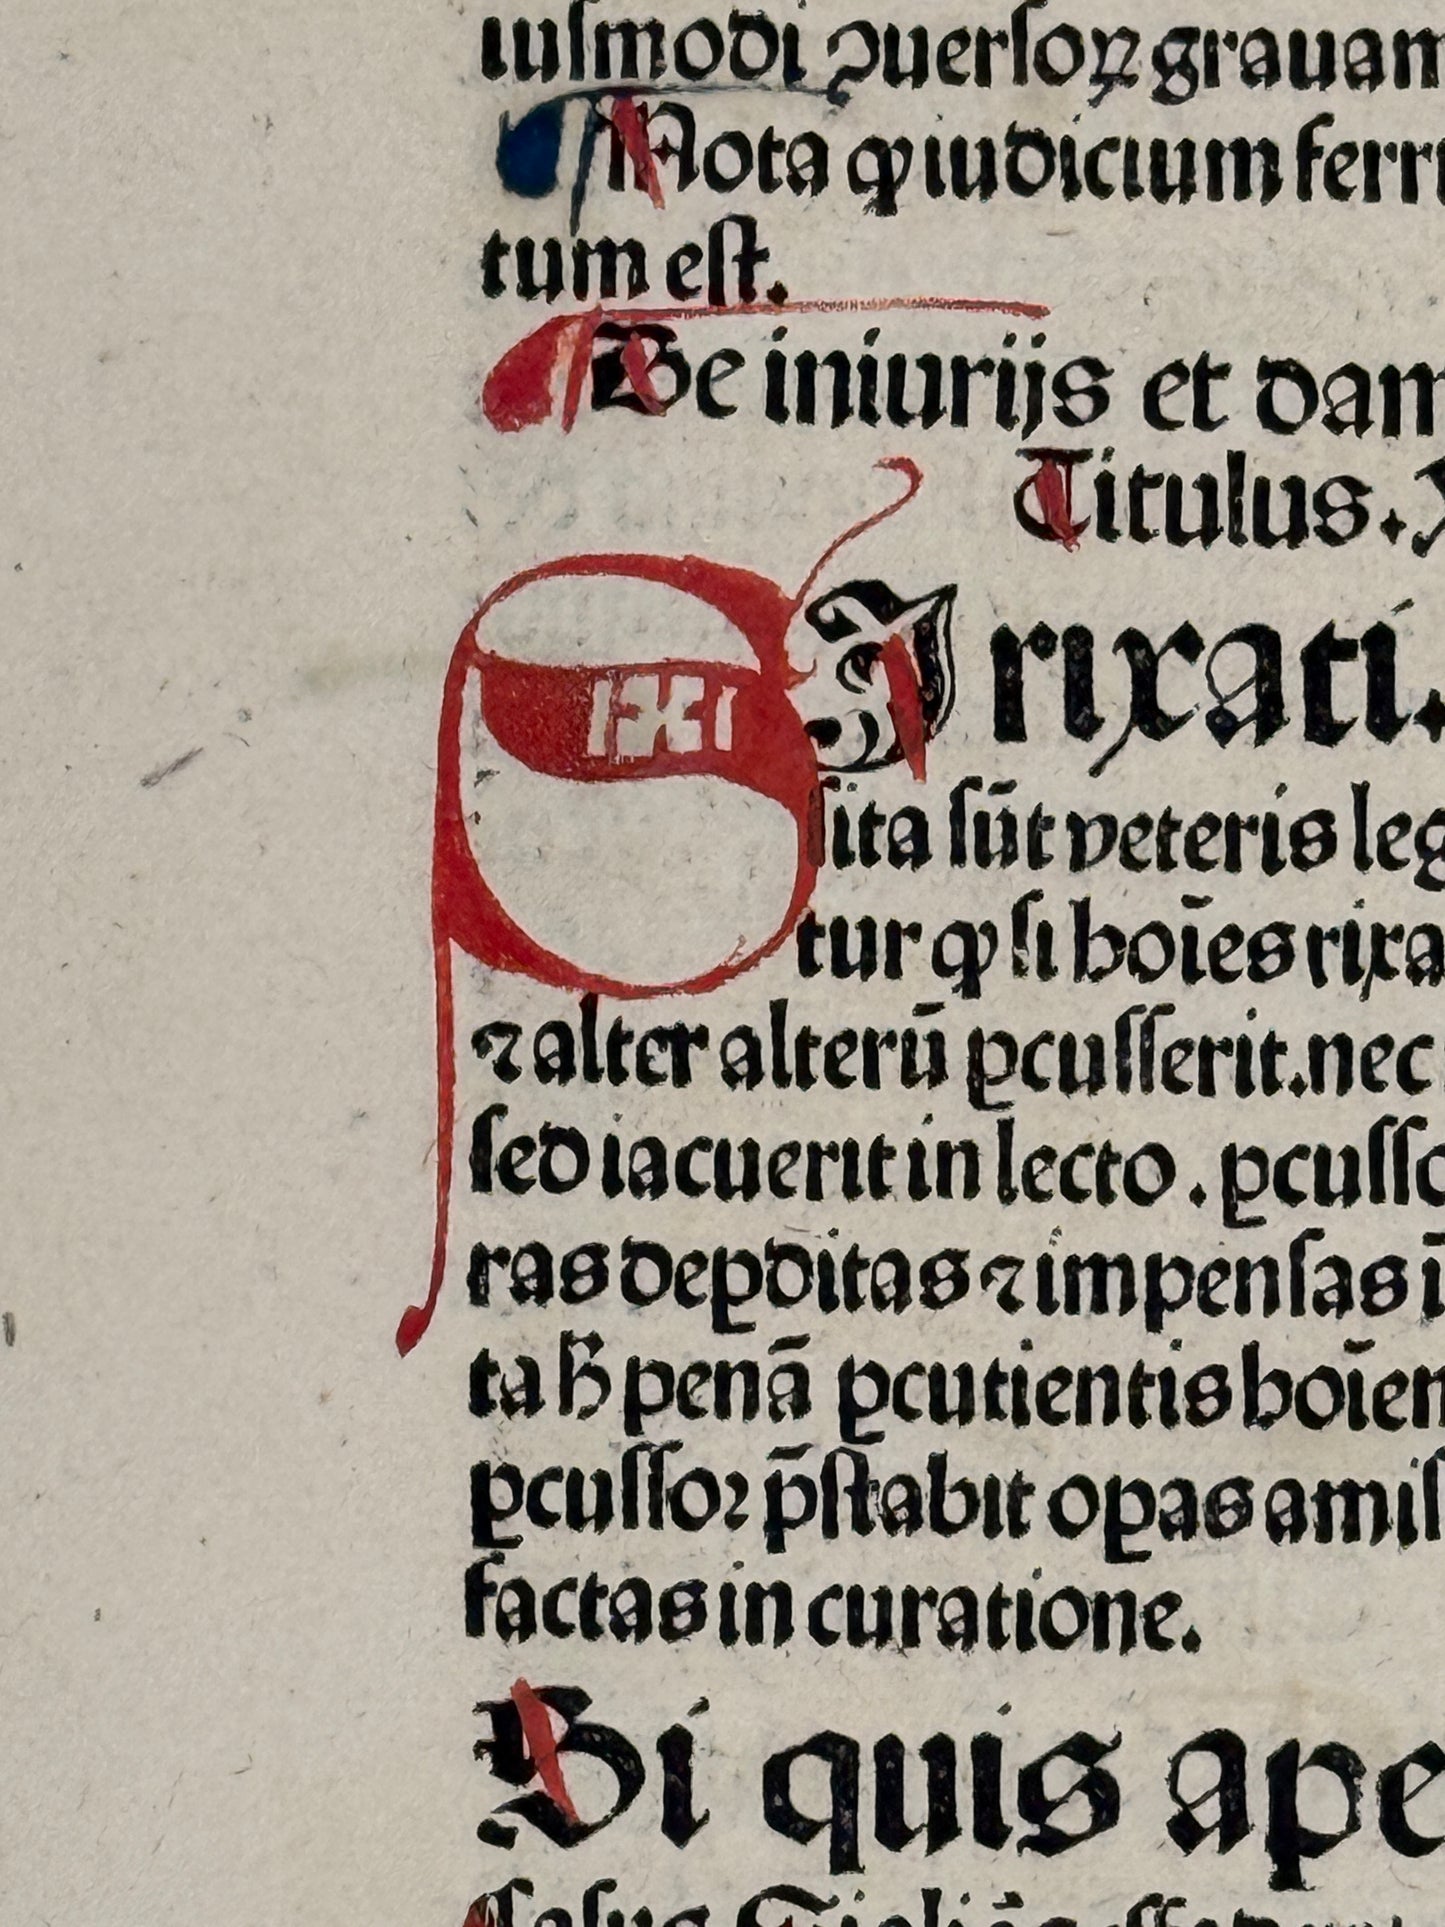 iuſmodi ꝯuerſoꝝ grauam
¶ Nota ꝙ iudicium ferri
tum eſt.
¶ De iniurijs et dam
Titulus. X
SI rixati.
ſita ſūt veteris leg
tur ꝙ ſi hoīes rixa
⁊ alter alterū ꝑcuſſerit. nec
ſed iacuerit in lecto. ꝑcuſſo
ras deꝑditas ⁊ impenſas ī
ta ħ penā ꝑcutientis hoīem
ꝑcuſſoꝛ p̄ſtabit oꝑas amiſ
factas in curatione.
Si quis ape